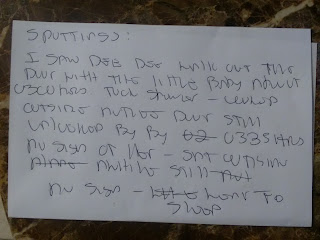 SPUTTINGS:
I SAW DEE DEE WALK OUT THE
DUR WITH THE LITTLE BABY ABOUT
0300HRS TUCK SHOWER - LOOKED
OUTSIDE DUR STILL
UNLOCKED BY BY 02 0335HRS
NO SIGN OF HER - SAT OUTSIDE
AWHILE STILL
NO SIGN - WENT TO
SLEEP